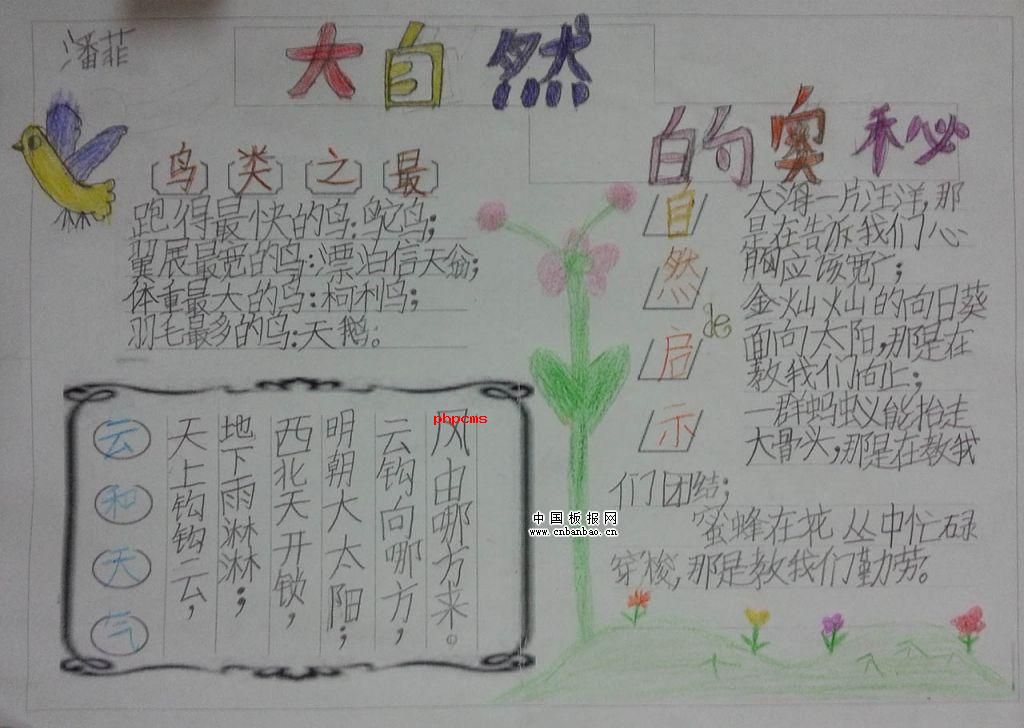 潘菲
大自然
的奥秘
鸟类之最
跑得最快的鸟:鸵鸟;
翼展最宽的鸟:漂泊信天翁;
体重最大的鸟:柯利鸟;
羽毛最多的鸟:天鹅。
自然de启示
大海一片汪洋,那
是在告诉我们心
胸应该宽广;
金灿灿的向日葵
面向太阳,那是在
教我们向上;
一群蚂蚁能抬走
大骨头,那是在教我
们团结;
蜜蜂在花丛中忙碌
穿梭,那是教我们勤劳。
云和天气
天上钩钩云,
地下雨淋淋;
西北天开锁,
明朝大太阳;
云钩向哪方,
风由哪方来。
phpcms
中国板报网
www.cnbanbao.cn